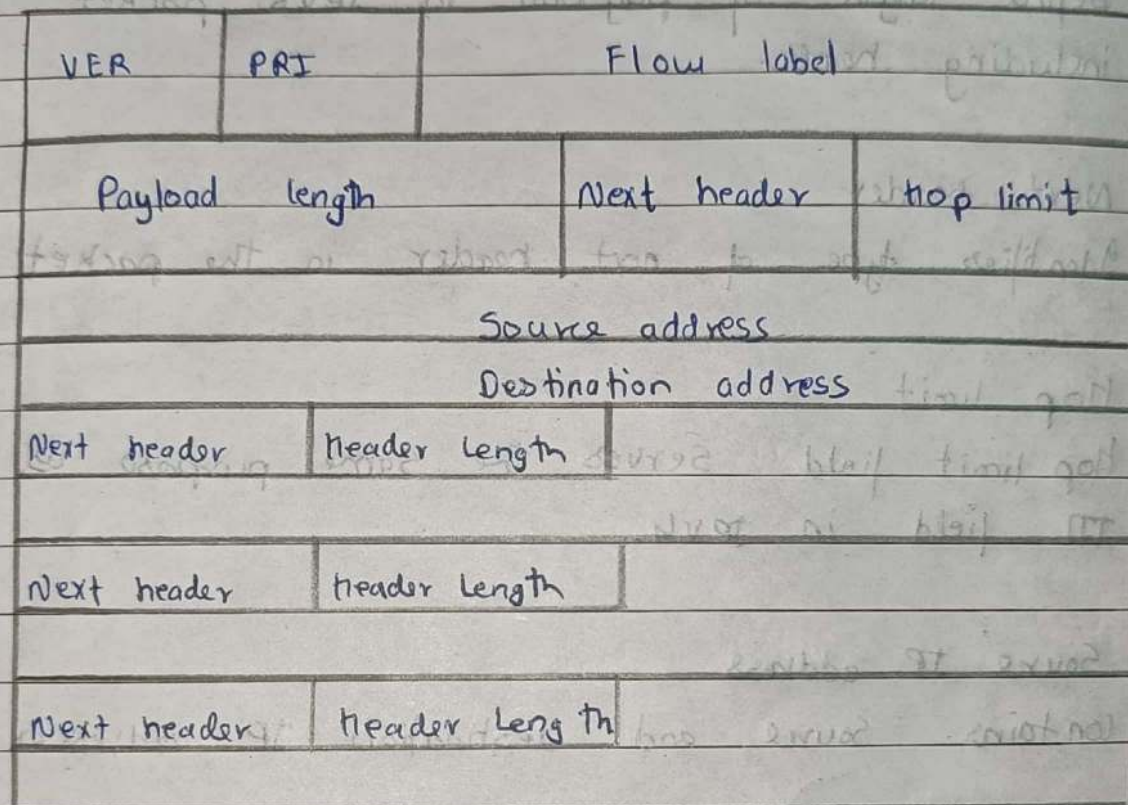 VER PRI Flow label
Payload length Next header Hop limit
Source address
Destination address
Next header Header Length
Next header Header Length
Next header Header Length